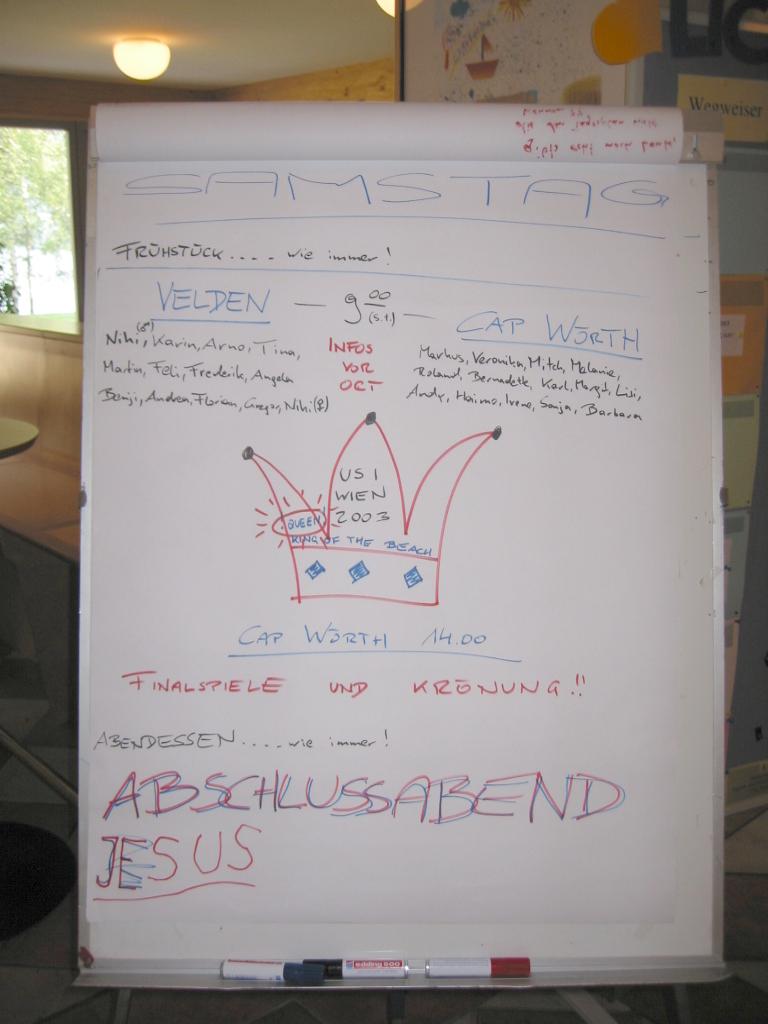 LIC
Wegweiser
SAMSTAG
FRÜHSTÜCK.... wie immer!
VELDEN — 9 00 (s.t.) — CAP WÖRTH
Nihi, (♂) Karin, Arno, Tina,
Martin, Feli, Frederik, Angela
Benji, Andrea, Florian, Gregor, Nihi (♀)
INFOS
VOR
OCT
Markus, Veronika, Mitch, Melanie,
Roland, Bernadette, Karl, Margit, Lisi,
Andy, Haimo, Irene, Sonja, Barbara
USI
WIEN
2003
QUEEN
KING OF THE BEACH
CAP WÖRTH 14.00
FINALSPIELE UND KRÖNUNG!!
ABENDESSEN.... wie immer!
ABSCHLUSSABEND
JESUS
edding 500